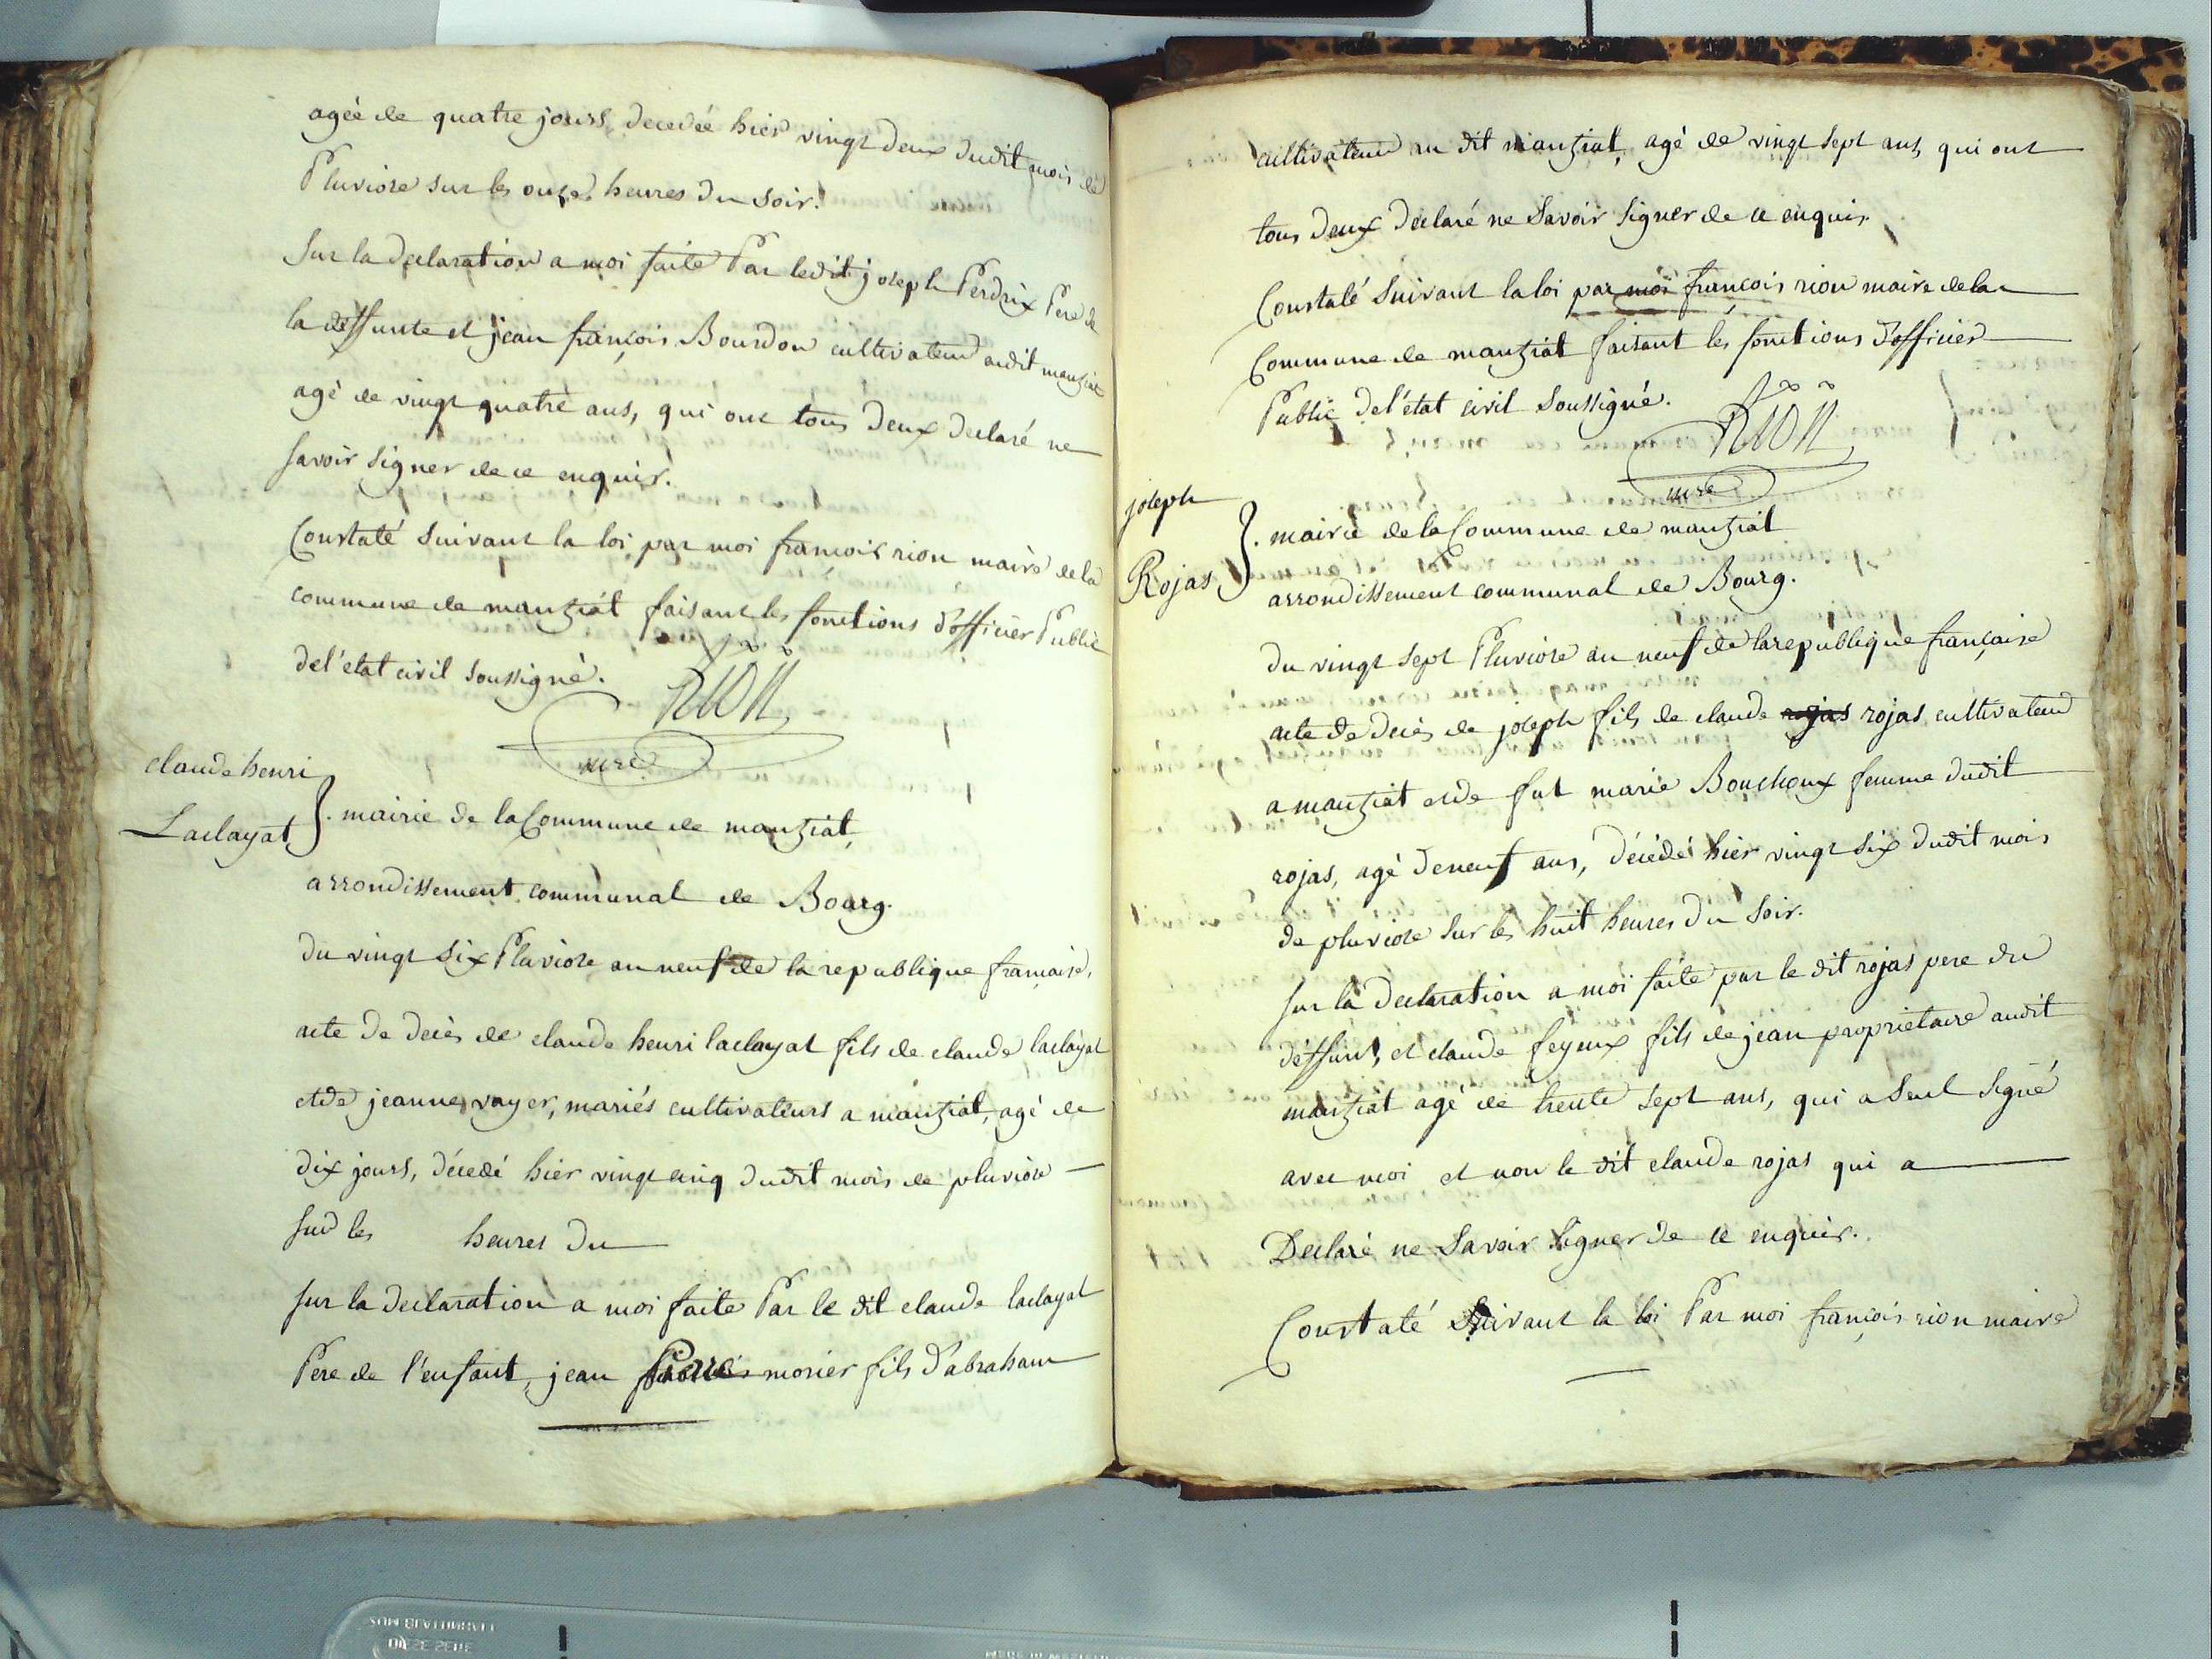 agée de quatre jours, decedée hier vingt deux dudit mois de
Pluviose sur les onze heures du soir.
Sur la declaration a moi faite Par ledit joseph Perdrix Pere de
la deffunte et jean françois Bourdon cultivateur audit manziat
agé de vingt quatre ans, qui ont tous deux declaré ne
savoir signer de ce enquis.
Constaté suivant la loi par moi françois rion maire de la
commune de manziat faisant les fonctions d'officier Public
de l'etat civil soussigné.
Rion
mre
claude henri
Laclayat
mairie de la Commune de manziat,
arrondissement communal de Bourg.
du vingt six Pluviose an neuf de la republique française,
acte de decès de claude henri laclayat fils de claude laclayat
et de jeanne voyer, mariés cultivateurs a manziat, agé de
dix jours, décedé hier vingt cinq dudit mois de pluviose
sur les heures du
sur la declaration a moi faite Par le dit claude laclayat
Pere de l'enfant, jean morier fils d'abraham
cultivateur au dit manziat, agé de vingt sept ans, qui ont
tous deux declaré ne savoir signer de ce enquis.
Constaté suivant la loi par moi françois rion maire de la
Commune de manziat faisant les fonctions d'officier
Public de l'état civil soussigné.
Rion
mre
joseph
Rojas
mairie de la Commune de manziat
arrondissement communal de Bourg.
du vingt sept Pluviose an neuf de la republique française
acte de decès de joseph fils de claude rojas rojas cultivateur
a manziat et de fut marie Bouchoux femme dudit
rojas, agé de neuf ans, décédé hier vingt six dudit mois
de pluviose sur les huit heures du soir.
sur la declaration a moi faite par le dit rojas pere du
déffunt, et claude feyeux fils de jean proprietaire audit
manziat agé de trente sept ans, qui a seul signé
avec moi et non le dit claude rojas qui a
Declaré ne savoir signer de ce enquis.
Constaté suivant la loi Par moi françois rion maire